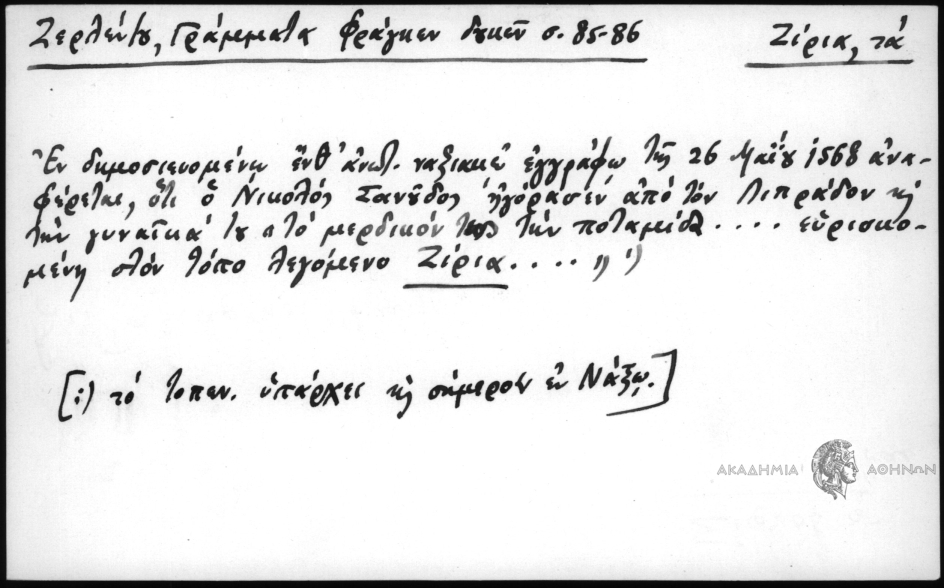 Ζερλέντȣ, Γράμματα Φράγκων δȣκῶν σ. 85-86
Ζίρια, τά
Ἐν δημοσιευομένῳ ἔνθ' ἀνωτ. ναξιακῷ ἐγγράφῳ τῆς 26 Μαΐȣ 1568 ἀνα-
φέρεται, ὅτι ὁ Νικολός Σανȣ͂δος "ἠγόρασεν ἀπό τόν Λιπράδον κὴ
τήν γυναῖκά τȣ τό μερδικόν τως τήν ποταμίδα .... εὑρισκο-
μένη στόν τόπο λεγόμενο Ζίρια .... " ¹)
[¹) τό τοπων. ὑπάρχει κὴ σήμερον ἐν Νάξῳ.]
ΑΚΑΔΗΜΙΑ ΑΘΗΝΩΝ